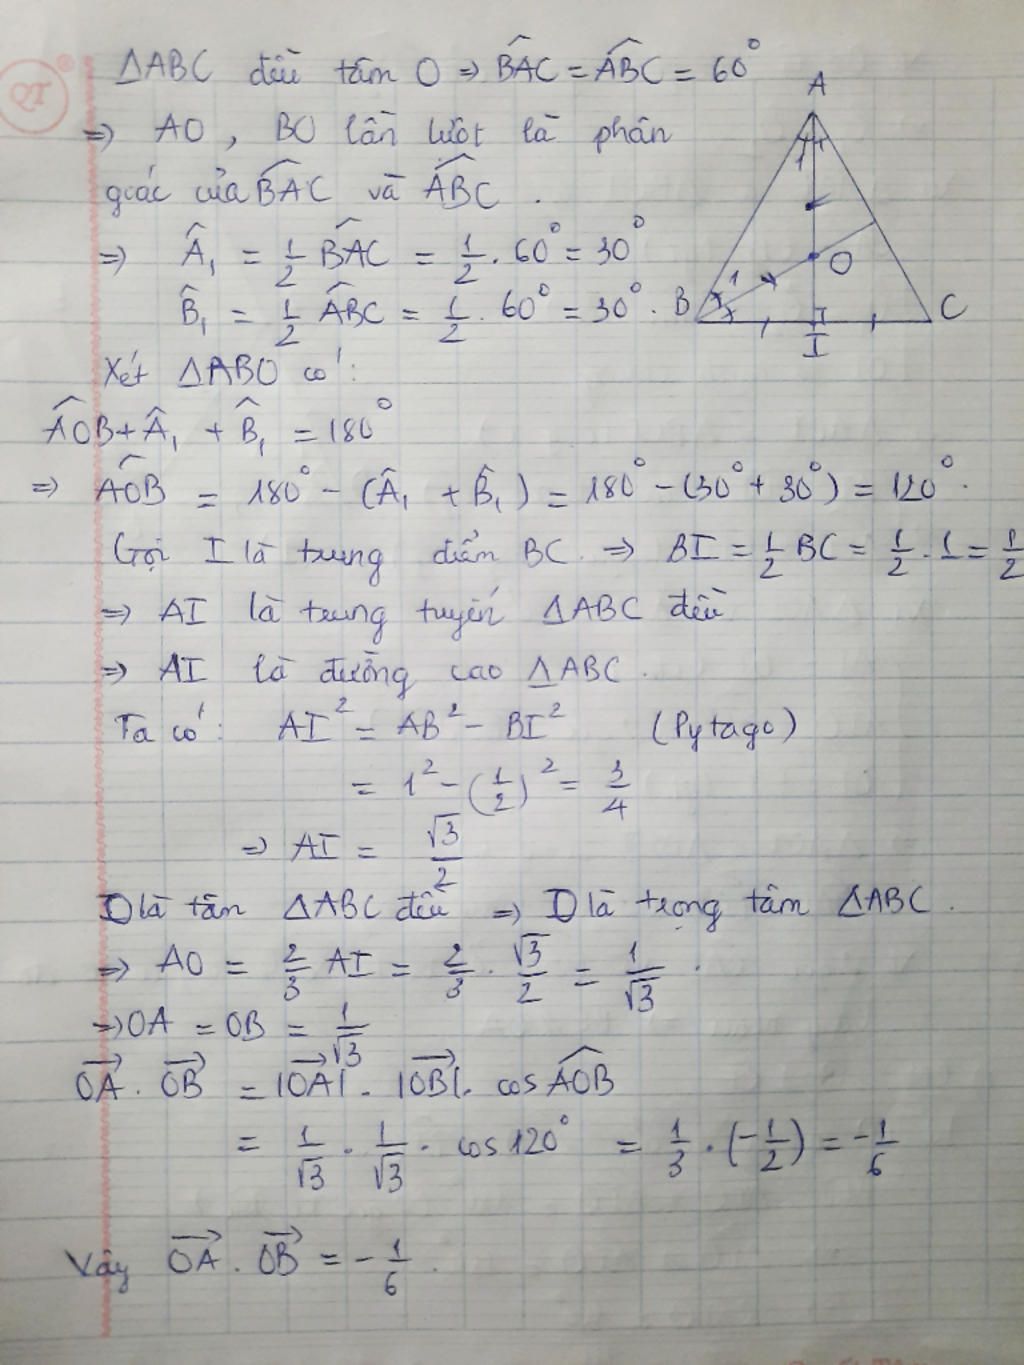 ΔABC đều tâm O ⇒ \widehat{BAC} = \widehat{ABC} = 60°
⇒ AO, BO lần lượt là phân
giác của \widehat{BAC} và \widehat{ABC}.
⇒ \hat{A}₁ = \frac{1}{2} \widehat{BAC} = \frac{1}{2} . 60° = 30°
\hat{B}₁ = \frac{1}{2} \widehat{ABC} = \frac{1}{2} . 60° = 30°.
A
1
O
B
1
C
I
Xét ΔABO có:
\widehat{AOB} + \hat{A}₁ + \hat{B}₁ = 180°
⇒ \widehat{AOB} = 180° - (\hat{A}₁ + \hat{B}₁) = 180° - (30° + 30°) = 120°.
Gọi I là trung điểm BC. ⇒ BI = \frac{1}{2} BC = \frac{1}{2} . 1 = \frac{1}{2}
⇒ AI là trung tuyến ΔABC đều
⇒ AI là đường cao ΔABC.
Ta có: AI² = AB² - BI² (Pytago)
= 1² - (\frac{1}{2})² = \frac{3}{4}
⇒ AI = \frac{\sqrt{3}}{2}
O là tâm ΔABC đều ⇒ O là trọng tâm ΔABC.
⇒ AO = \frac{2}{3} AI = \frac{2}{3} . \frac{\sqrt{3}}{2} = \frac{1}{\sqrt{3}}.
⇒ OA = OB = \frac{1}{\sqrt{3}}
\overrightarrow{OA} . \overrightarrow{OB} = |\overrightarrow{OA}| . |\overrightarrow{OB}| . cos \widehat{AOB}
= \frac{1}{\sqrt{3}} . \frac{1}{\sqrt{3}} . cos 120° = \frac{1}{3} . (-\frac{1}{2}) = -\frac{1}{6}
Vậy \overrightarrow{OA} . \overrightarrow{OB} = -\frac{1}{6}.